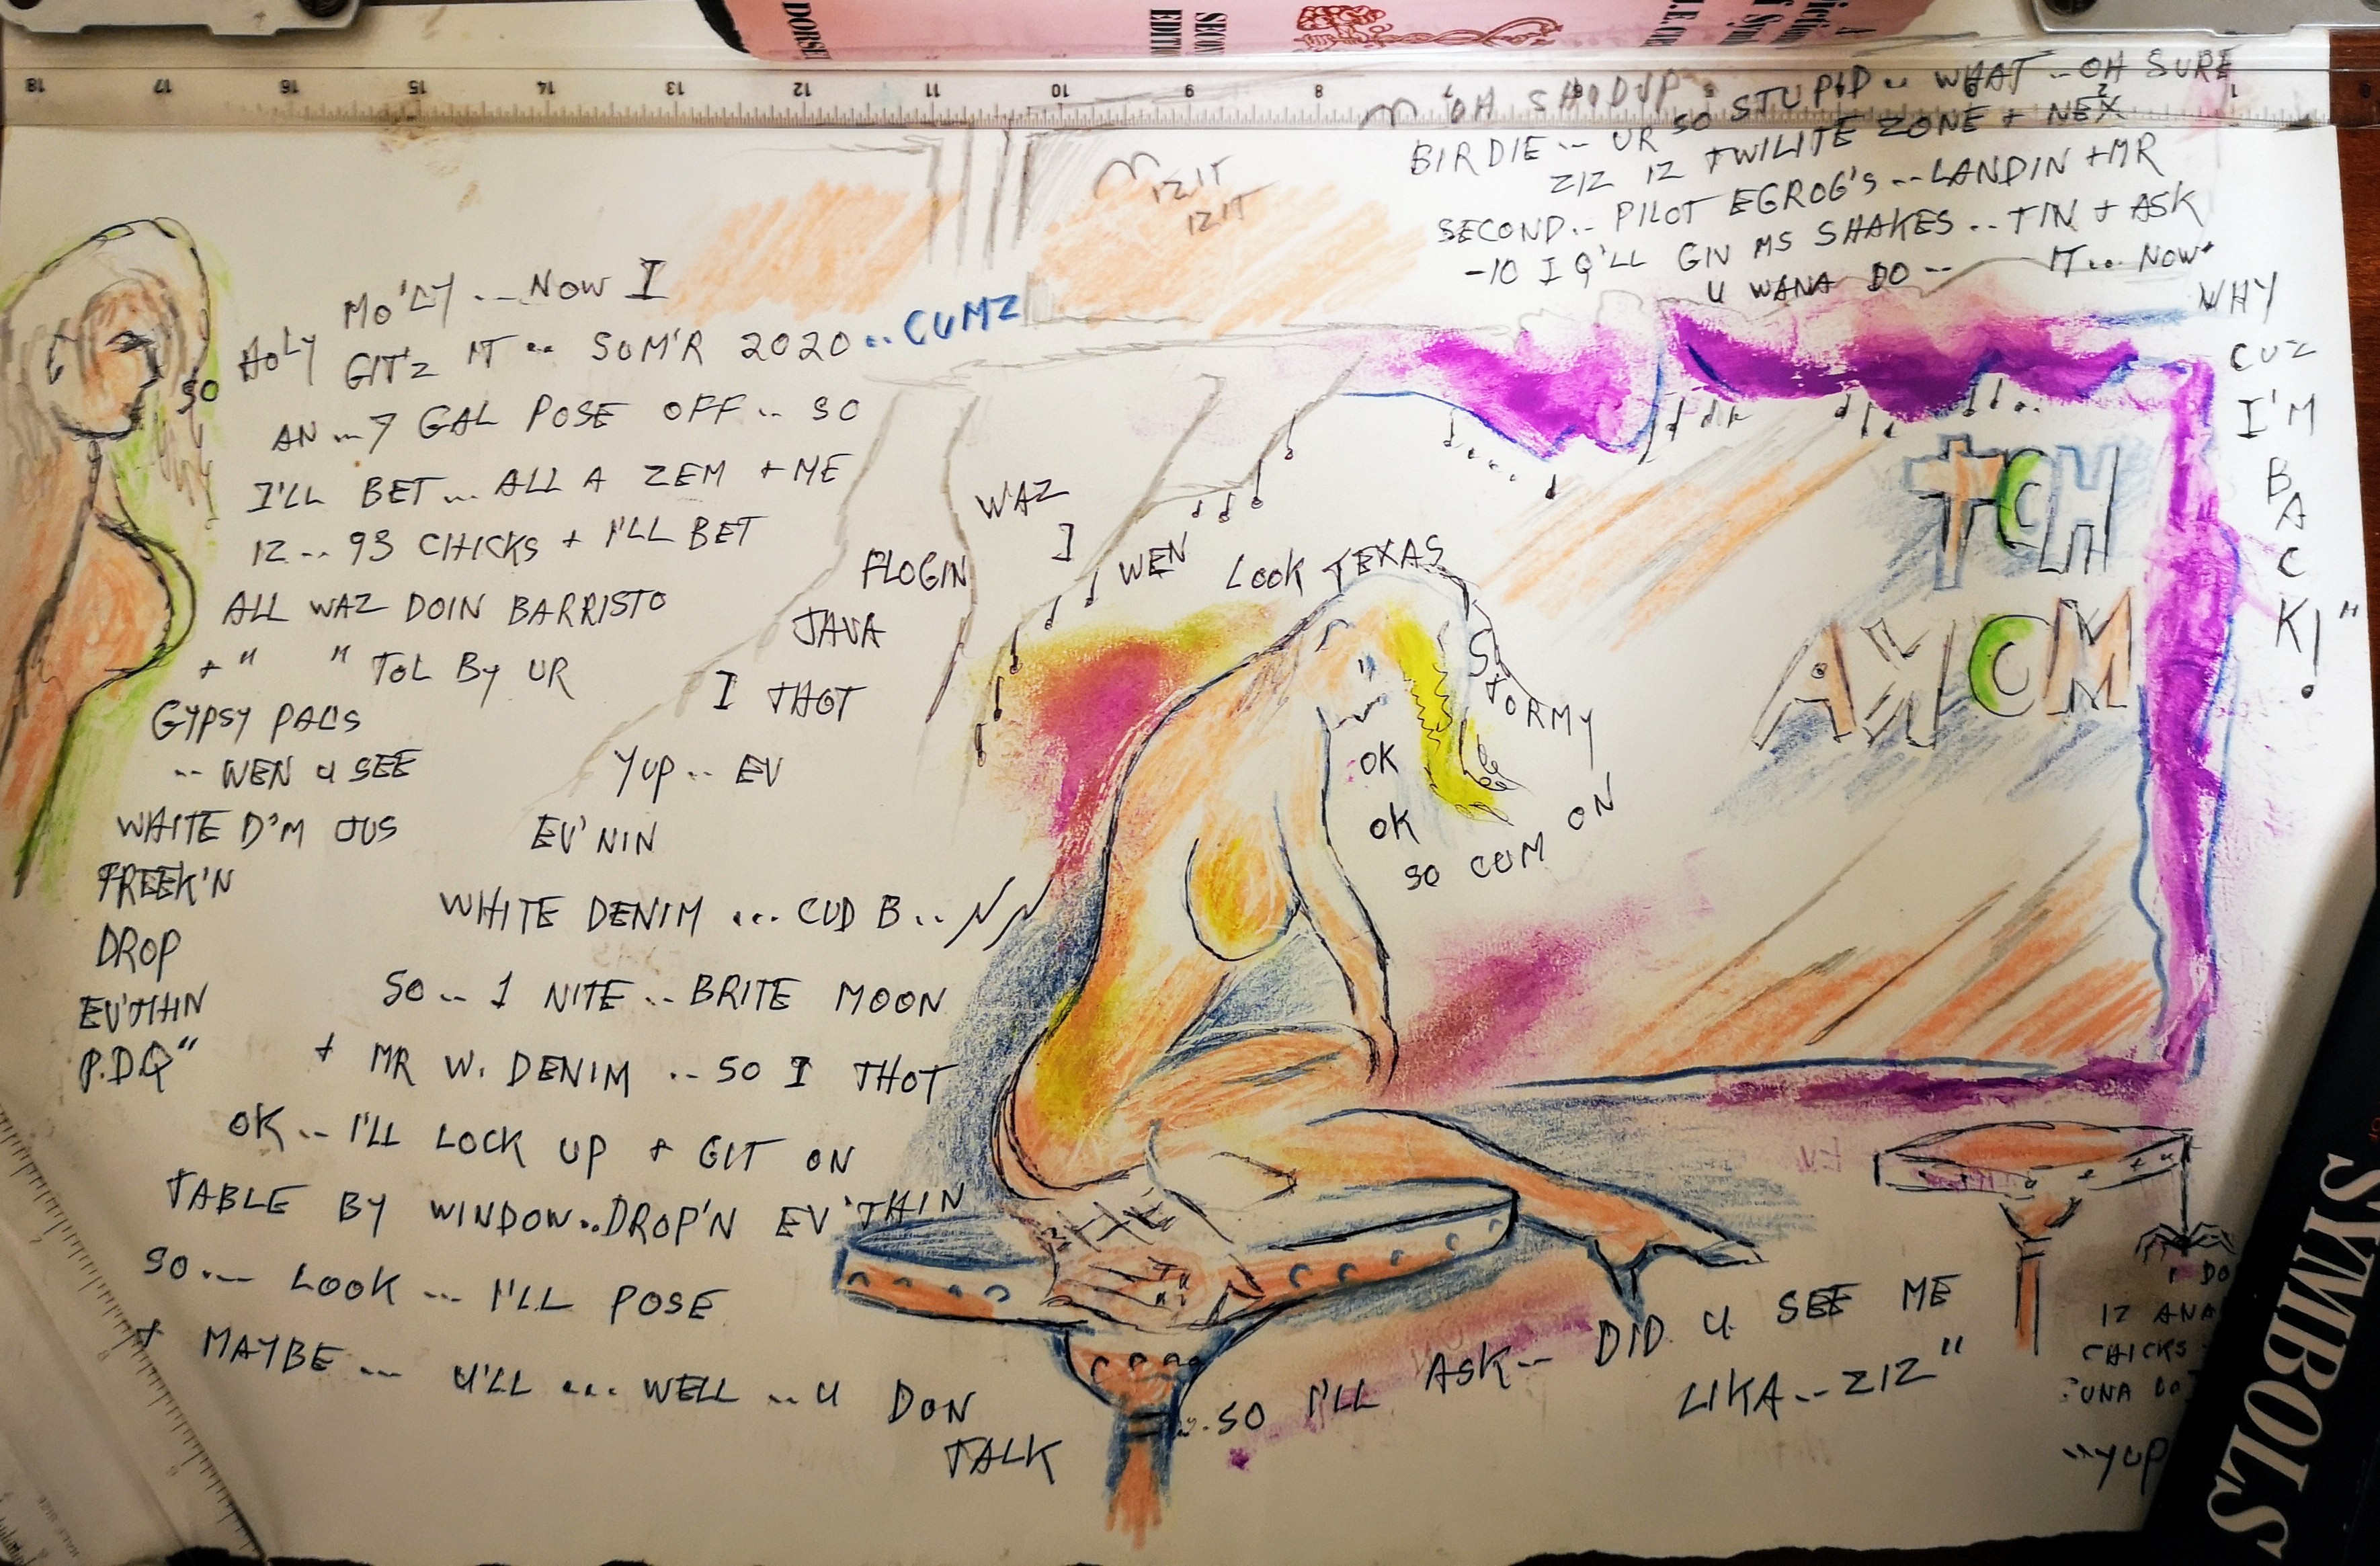 DORSET
SECOND
EDITION
18 17 16 15 14 13 12 11 10 9 8 7
OH SHODUP.. STUPID.. WHAT.. OH SURE
BIRDIE... UR SO
ZIZ IZ TWILITE ZONE + NEX
SECOND.. PILOT EGROG'S... LANDIN + MR
-10 I Q'LL GIV MS SHAKES.. TIN + ASK
U WANA DO -- IT... NOW
WHY
CUZ
I'M
B
A
C
K!"
IZ IT
IZ IT
MO'LY... NOW I
SO HOLY GIT'Z IT.. SUM'R 2020.. CUMZ
AN... 7 GAL POSE OFF.. SO
I'LL BET... ALL A ZEM + ME
IZ.. 93 CHICKS + I'LL BET
ALL WAZ DOIN BARRISTO
+ " " TOL BY UR
GYPSY PAL'S
.. WEN U SEE
WHITE D'M JUS
FREEK'N
DROP
EV'THN
P.D.Q"
WEN
I
WAZ
FLOGIN
JAVA
I THOT
YUP.. EV
EV'NIN
WHITE DENIM ... CUD B..
SO.. 1 NITE.. BRITE MOON
+ MR W. DENIM .. SO I THOT
OK.. I'LL LOCK UP + GIT ON
TABLE BY WINDOW..DROP'N EV'THIN
SO... LOOK ... I'LL POSE
+ MAYBE ... U'LL ... WELL .. U DON
TALK
..SO I'LL ASK.. DID U SEE ME
LIKA.. ZIZ"
LOOK TEXAS
STORMY
OK
OK
SO CUM ON
TCH
CM
I DO
IZ
CHICKS
"YUP
SYMBOLS